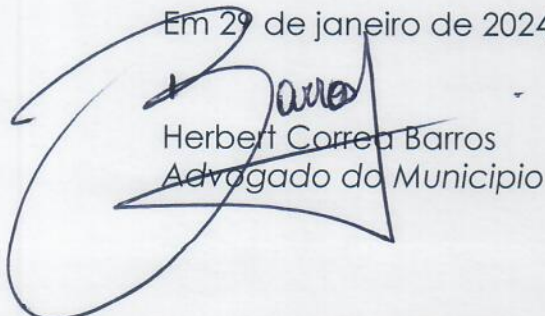 Em 29 de janeiro de 2024
Barros
Herbert Correa Barros
Advogado do Municipio